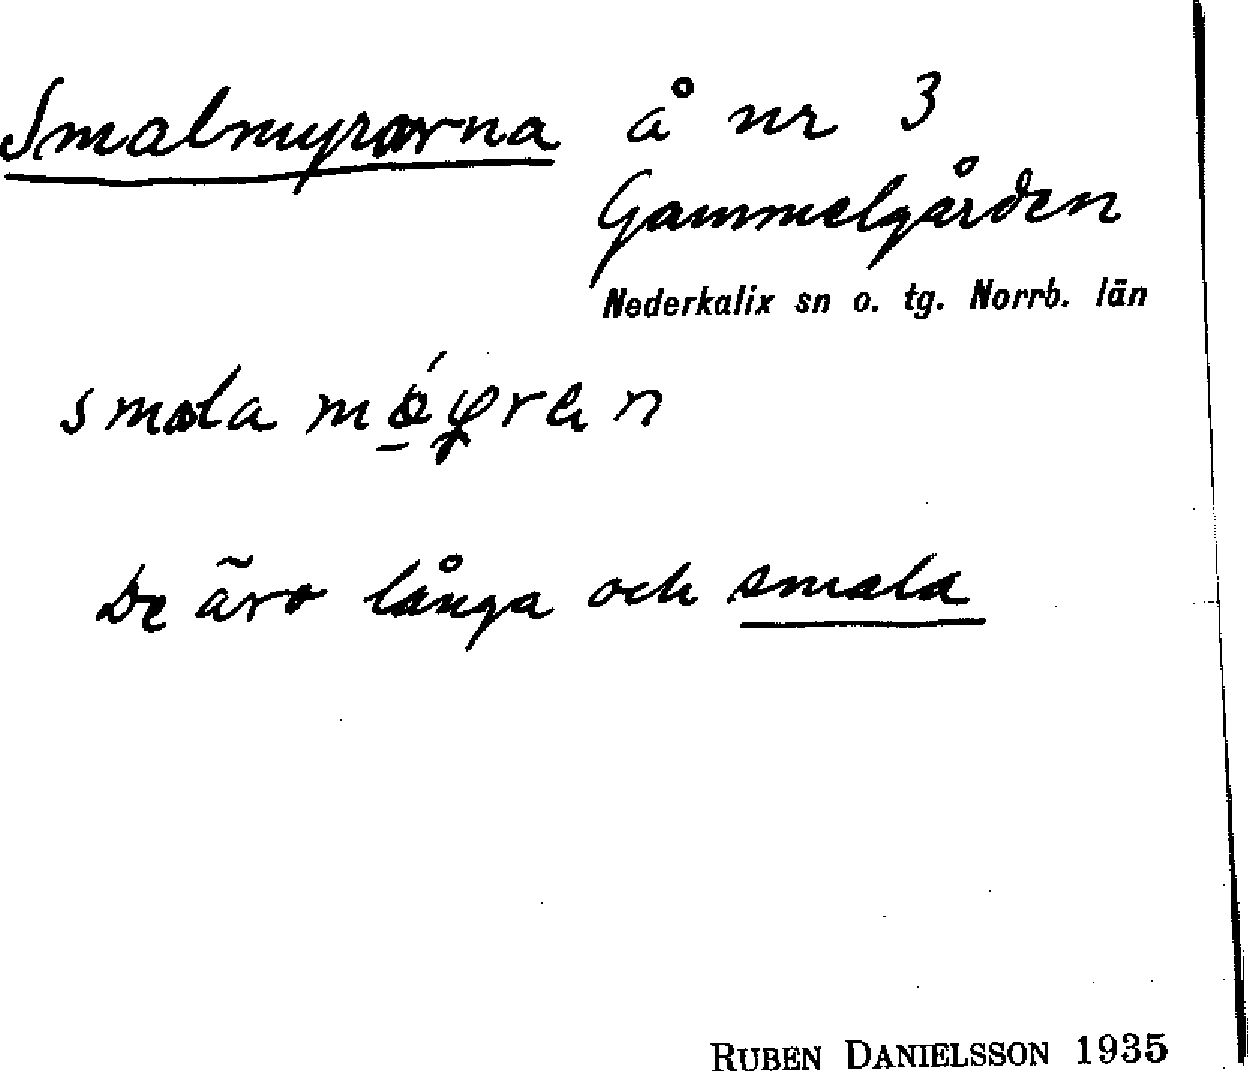 Smalmyrorna å nr 3
Gammelgården
Nederkalix sn o. tg. Norrb. län
smala
De äro långa och smala
RUBEN DANIELSSON 1935